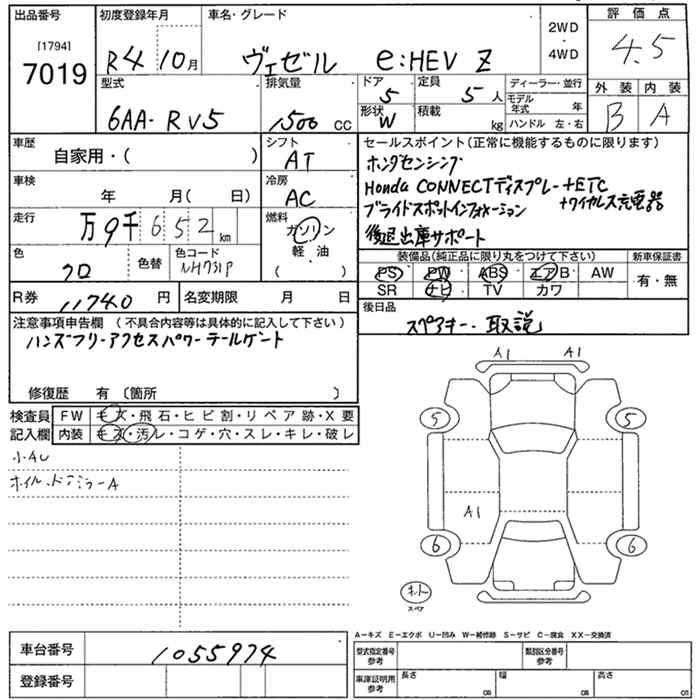 出品番号 初度登録年月 車名・グレード 2WD 評価点
[1794] 7019 R4 10月 ヴェゼル e:HEV Z ・ 4WD 4.5
型式 排気量 ドア 定員 ディーラー・並行 外装 内装
6AA- RV5 1500 CC 5 5人 モデル年式 年 B A
形状 W 積載 kg ハンドル 左・右
車歴 シフト セールスポイント(正常に機能するものに限ります)
自家用・( ) AT ホンダセンシング
車検 冷房 Honda CONNECTディスプレー+ETC
年 月( 日) AC ブラインドスポットインフォメーション +ワイヤレス充電器
走行 燃料 後退出庫サポート
万9千652km ガソリン
色 色替 色コード 軽・油 装備品(純正品に限り丸をつけて下さい) 新車保証書
クロ NH731P ( ) PS PW ABS エアB AW 有・無
R券 11740円 名変期限 月 日 SR ナビ TV カワ
注意事項申告欄 (不具合内容等は具体的に記入して下さい) 後日品
ハンズフリーアクセスパワーテールゲート スペアキー・取説
修復歴 有 〔箇所 〕
検査員 FW キズ・飛石・ヒビ割・リペア跡・X要
記入欄 内装 キズ・汚レ・コゲ・穴・スレ・キレ・破レ
小AU
ホイル、ドアミラーA
A1 A1
5 5
A1
6 6
スペア
A−キズ E−エクボ U−凹み W−補修跡 S−サビ C−腐食 XX−交換済
車台番号 1055974 型式指定番号 参考 類別区分番号 参考
登録番号 車庫証明用 参考 長さ 幅 高さ